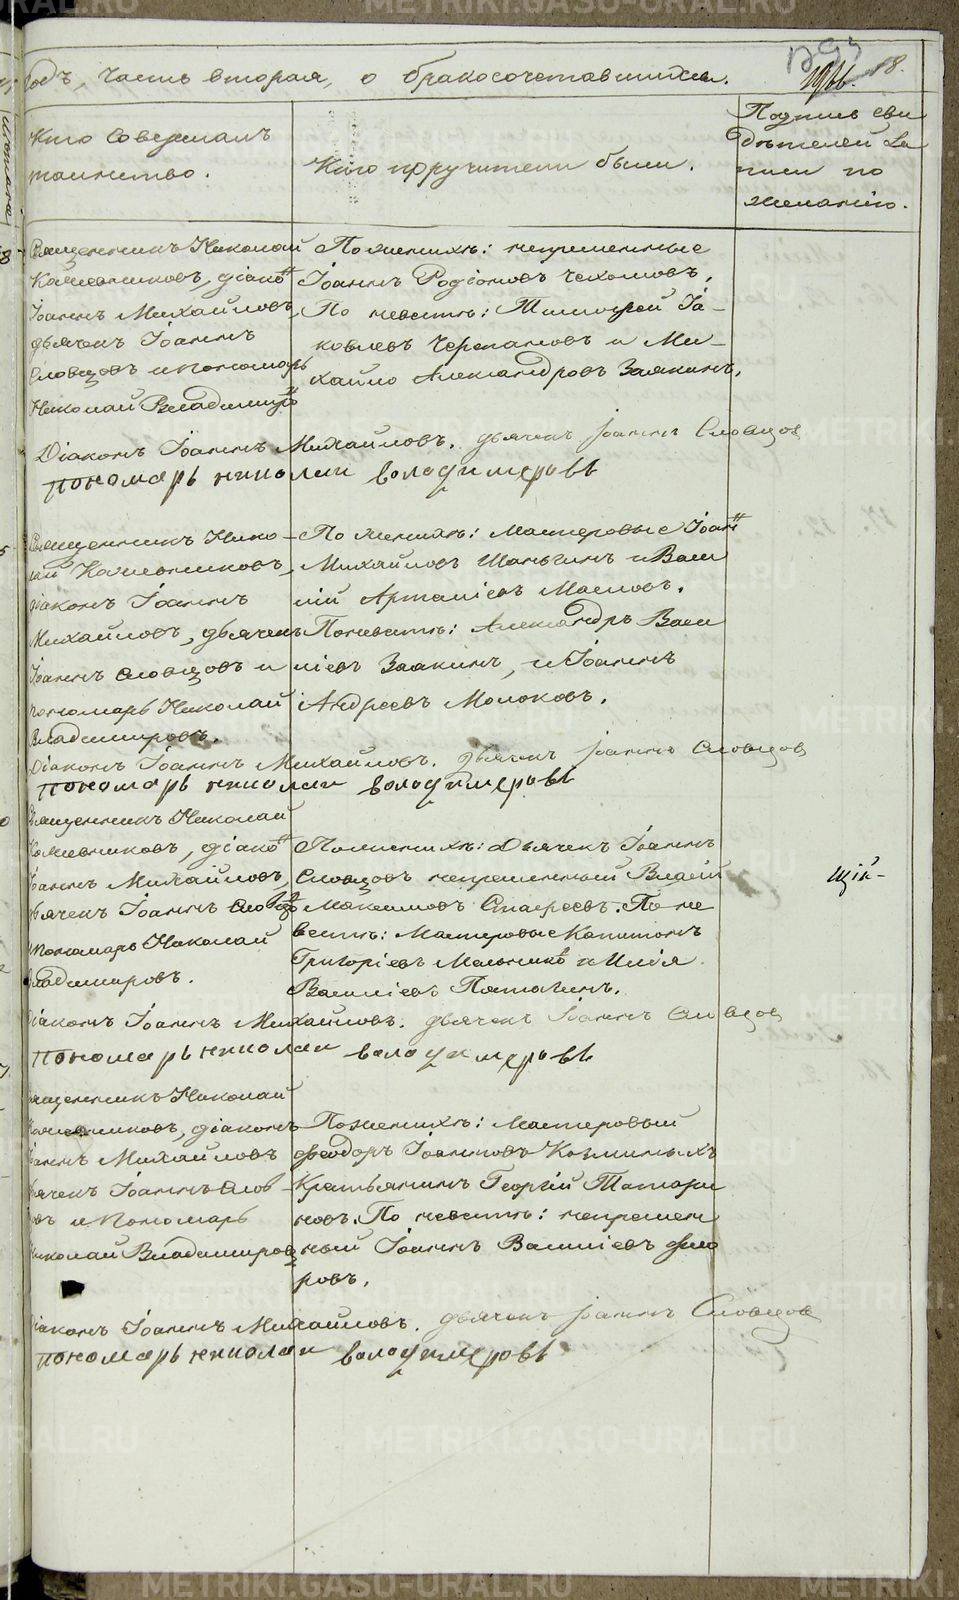 годъ, часть вторая, о бракосочетавшихся.
18.
Кто совершалъ
таинство.
Кто поручители были.
Подпись сви
дѣтелей за
писи по
желанію.
Священникъ Николай
Кожевниковъ, діако
Іоаннъ Михайловъ,
дьячекъ Іоаннъ
Словцовъ и пономарь
Николай Владимиро
По женихѣ: непременные
Іоаннъ Родіоновъ Чехомовъ.
По невестѣ: Тимофей Іа-
ковлевъ Черепановъ и Ми-
хайло Александровъ Заякинъ.
Діаконъ Іоаннъ Михайловъ. дьячекъ Іоаннъ Словцов
пономарь николаи володимеровъ
Священникъ Нико-
лай Кожевниковъ,
діаконъ Іоаннъ
Михайловъ, дьячекъ
Іоаннъ Словцовъ и
пономарь Николай
Владимировъ.
По женихѣ: Мастеровые Іоан
Михайловъ Шаньгинъ и Васи
лій Артеміевъ Масловъ.
По невестѣ: Александръ Васи
ліевъ Заякинъ, и Іоаннъ
Андреевъ Молоковъ.
Діаконъ Іоаннъ Михайловъ. дьячекъ Іоаннъ Словцов
пономарь николаи володимеровъ
Священникъ Николай
Кожевниковъ, діако
Іоаннъ Михайловъ,
дьячекъ Іоаннъ Словцо
пономарь Николай
Владимировъ.
По женихѣ: Дьячекъ Іоаннъ
Словцовъ непременный Власій
Максимовъ. По не
вестѣ: Мастеровые Капитонъ
Григоріевъ Мельниковъ и Илія
Василіевъ Пятыгинъ.
Діаконъ Іоаннъ Михайловъ. дьячекъ Іоаннъ Словцов
пономарь николаи володимеровъ
щій-
Священникъ Николай
Кожевниковъ, діаконъ
Іоаннъ Михайловъ
дьячекъ Іоаннъ Слов
овъ и Пономарь
Николай Владимиров
По женихѣ: Мастеровый
Феодоръ Іоанновъ Козминыхъ
Крестьянинъ Георгій Татари
новъ. По невестѣ: непремен
ный Іоаннъ Василіевъ Фло
ровъ.
Діаконъ Іоаннъ Михайловъ. дьячекъ Іоаннъ Словцов
пономарь николаи володимеровъ
METRIKI.GASO-URAL.RU